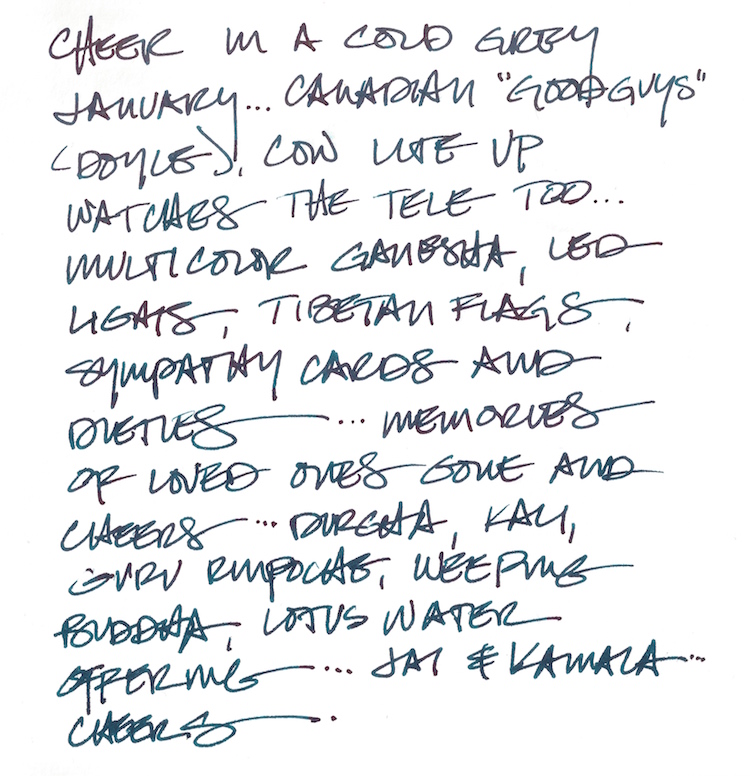 CHEER IN A COLD GREY
JANUARY... CANADIAN "GOODGUYS"
(DOYLE), COW LITE UP
WATCHES THE TELE TOO...
MULTICOLOR GANESHA, LED
LIGHTS, TIBETAN FLAGS,
SYMPATHY CARDS AND
DIETIES ... MEMORIES
OF LOVED ONES GONE AND
CHEERS ... DURGHA, KALI,
GURU RINPOCHE, WEEPING
BUDDHA, LOTUS WATER
OFFERING ... JAI & KAMALA...
CHEERS.